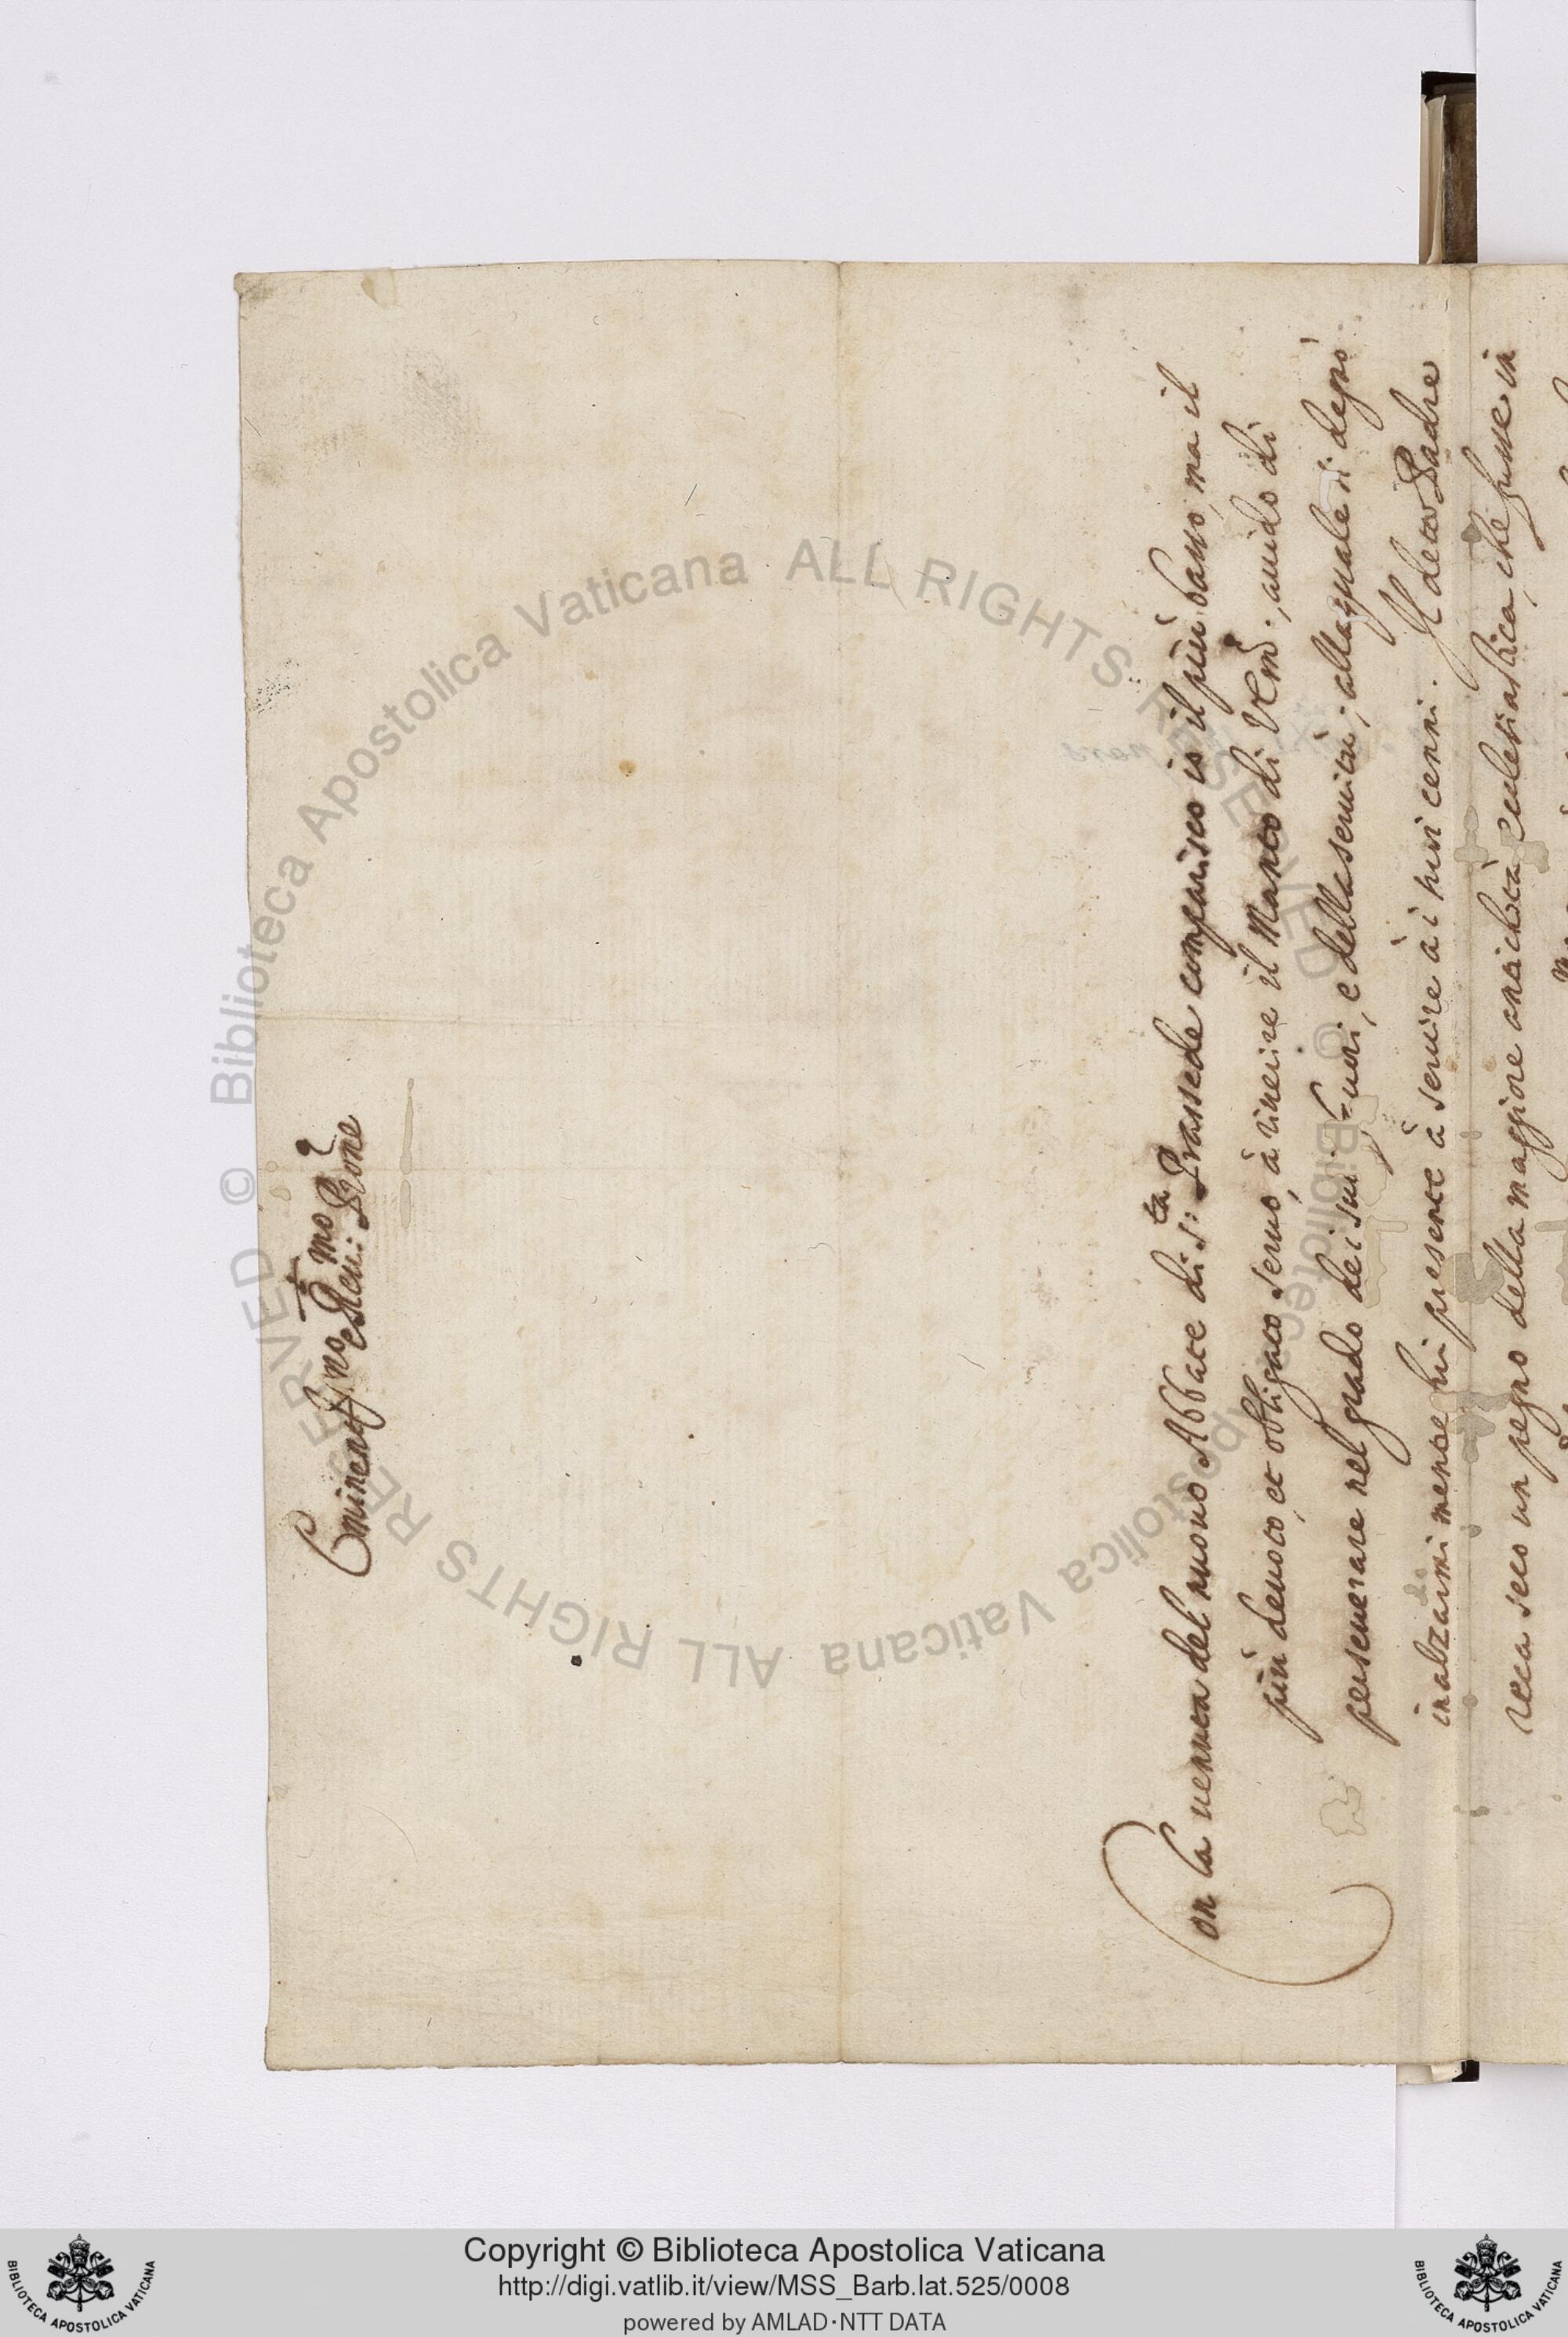 †
Eminent.mo e Reu.mo P.rone
Con la uenuta del nuouo Abbate di S.ta Prassede comparisco io il più basso, ma il
più deuoto, et obligato seruo, à riuerire il Manto di V. Em.; auido di
perseuerare nel grado dei sui fauori, e della seruitù; alla quale si degnò
inalzarmi mentre fui presente à seruire à i suoi cenni. Il detto Padre
reca seco un pegno della maggiore antichità eclesiastica, che fusse in
© Biblioteca Apostolica Vaticana ALL RIGHTS RESERVED
© Biblioteca Apostolica Vaticana ALL RIGHTS RESERVED
Copyright © Biblioteca Apostolica Vaticana
http://digi.vatlib.it/view/MSS_Barb.lat.525/0008
powered by AMLAD·NTT DATA
BIBLIOTECA APOSTOLICA VATICANA
BIBLIOTECA APOSTOLICA VATICANA